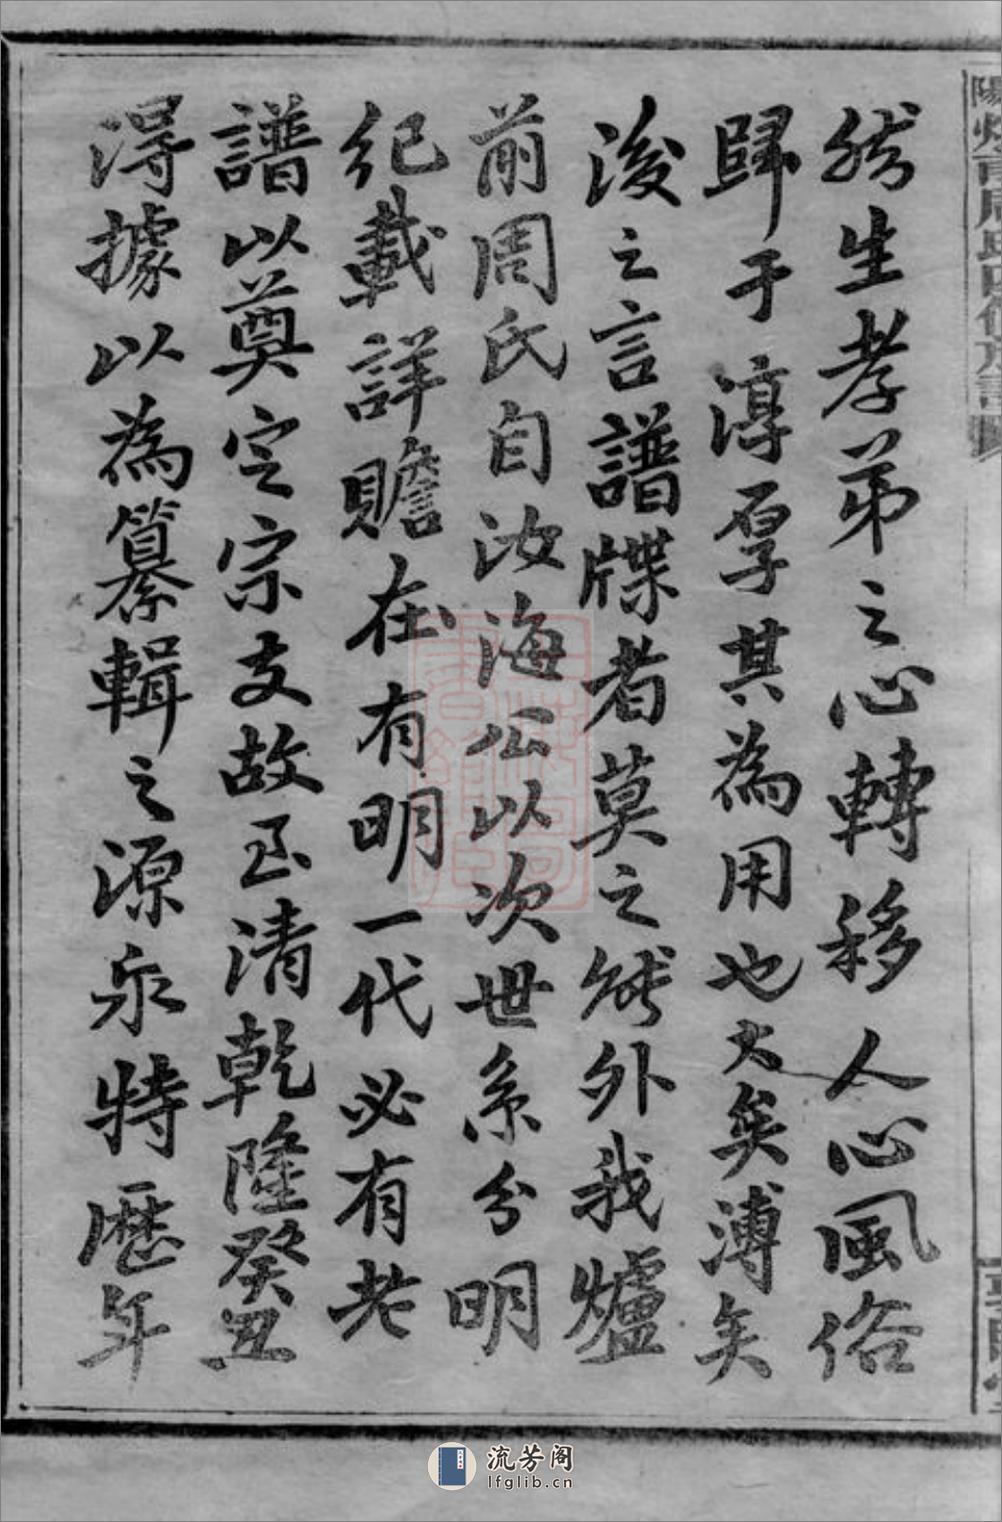 然生孝弟之心轉移人心風俗
歸于淳厚其為用也大矣溥矣
後之言譜牒者莫之能外我爐
前周氏自汝海公以次世系分明
紀載詳贍在有明一代必有老
譜以奠定宗支故至清乾隆癸丑
得據以為纂輯之源泉特歷年
流芳阁
lfglib.cn